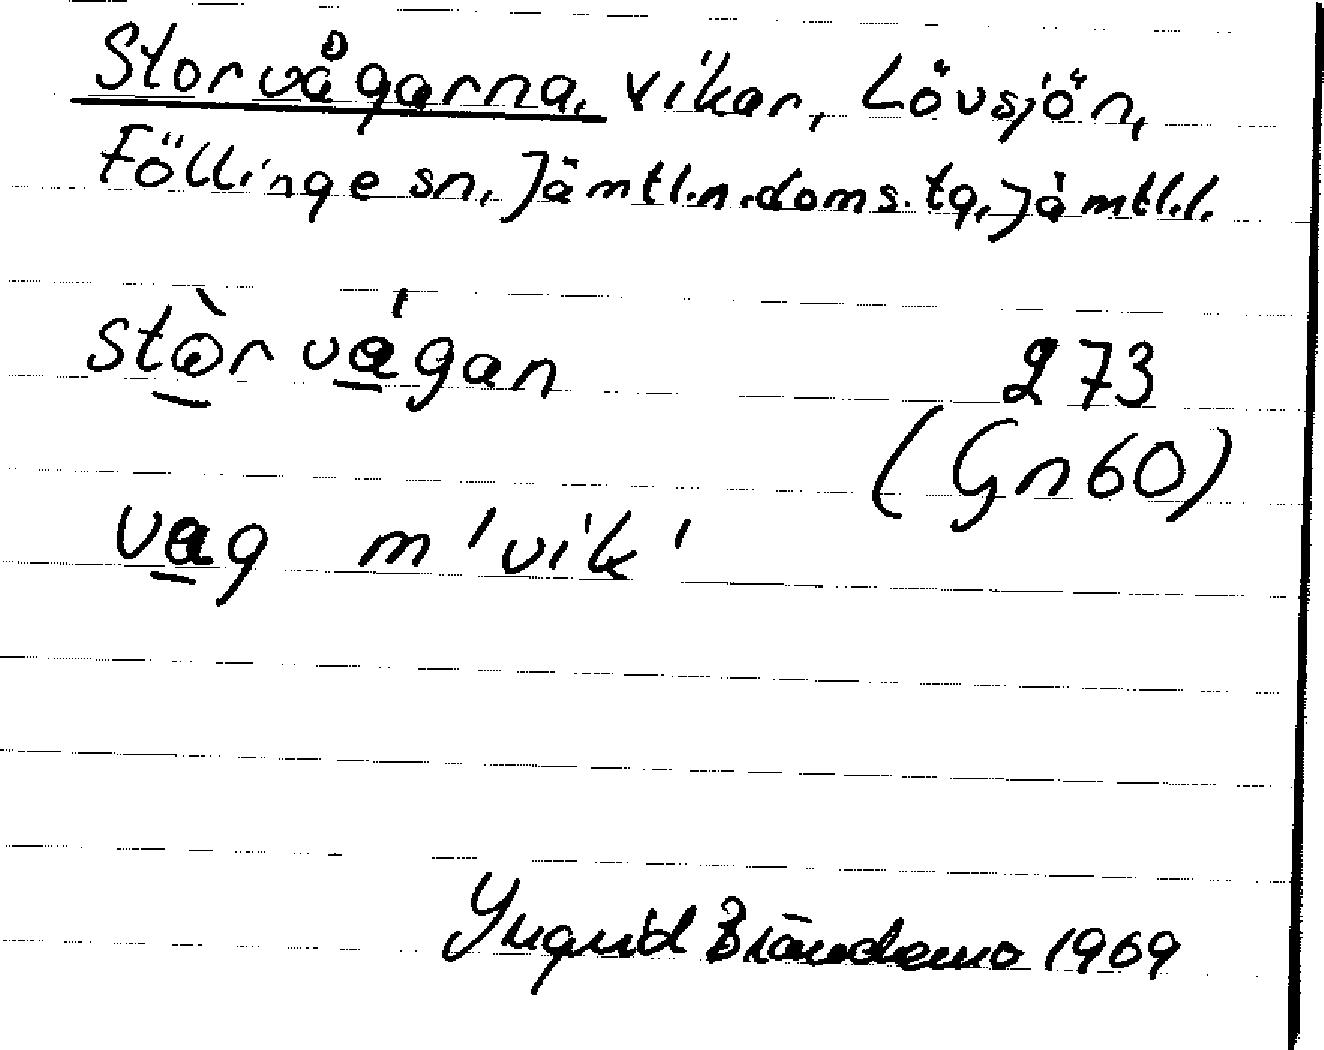 Storvågarna, vikar, Lövsjön,
Föllinge sn, Jämtl.n.doms.tg, Jämtl.l.
stòrvágan 273
(Gn60)
vag m 'vik'
Yngvid Brändemo 1969